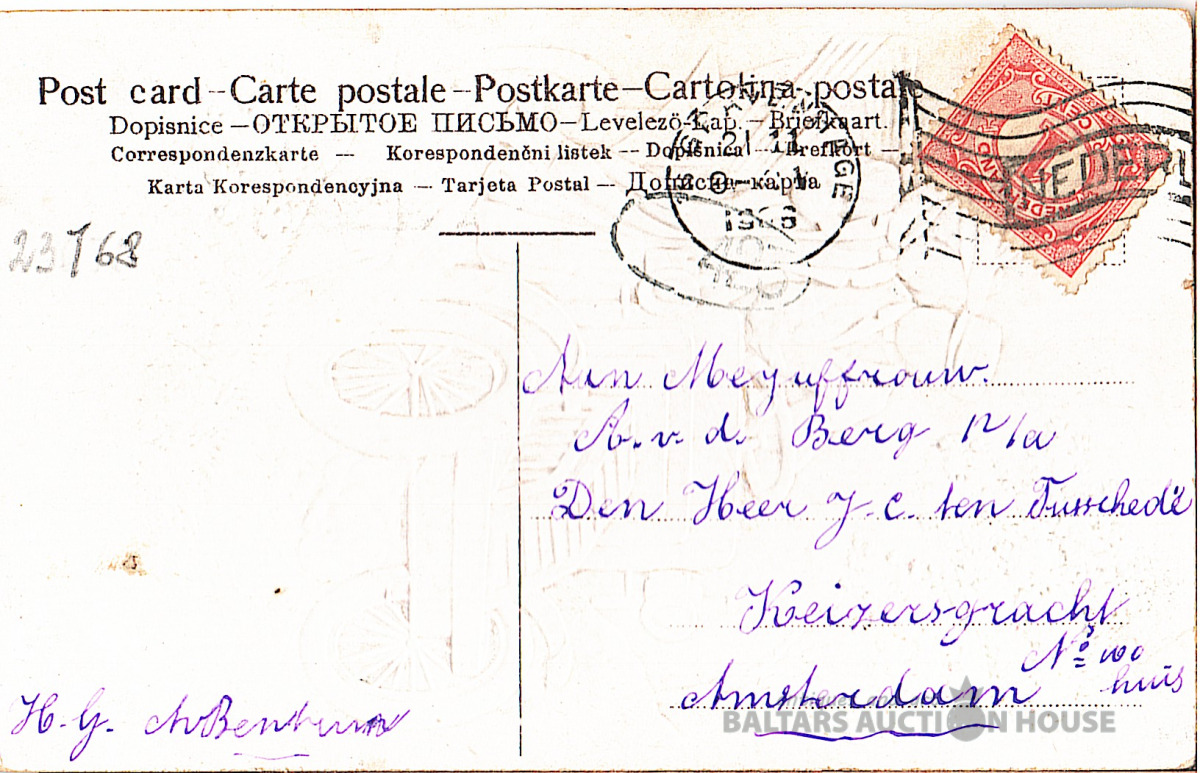 Post card -- Carte postale -- Postkarte -- Cartolina postale
Dopisnice — ОТКРЫТОЕ ПИСЬМО — Levelező-Lap. — Briefkaart.
Correspondenzkarte — Korespondenčni listek -- Dopisnica — Brefkort —
Karta Korespondencyjna — Tarjeta Postal — Дописна карта
21 11
NEDE
23/68
Aan Meyuffrouw.
A. v. d. Berg P/a
Den Heer J. C. ten
Keizersgracht
No 100
huis
Amsterdam
H. G.
BALTARS AUCTION HOUSE